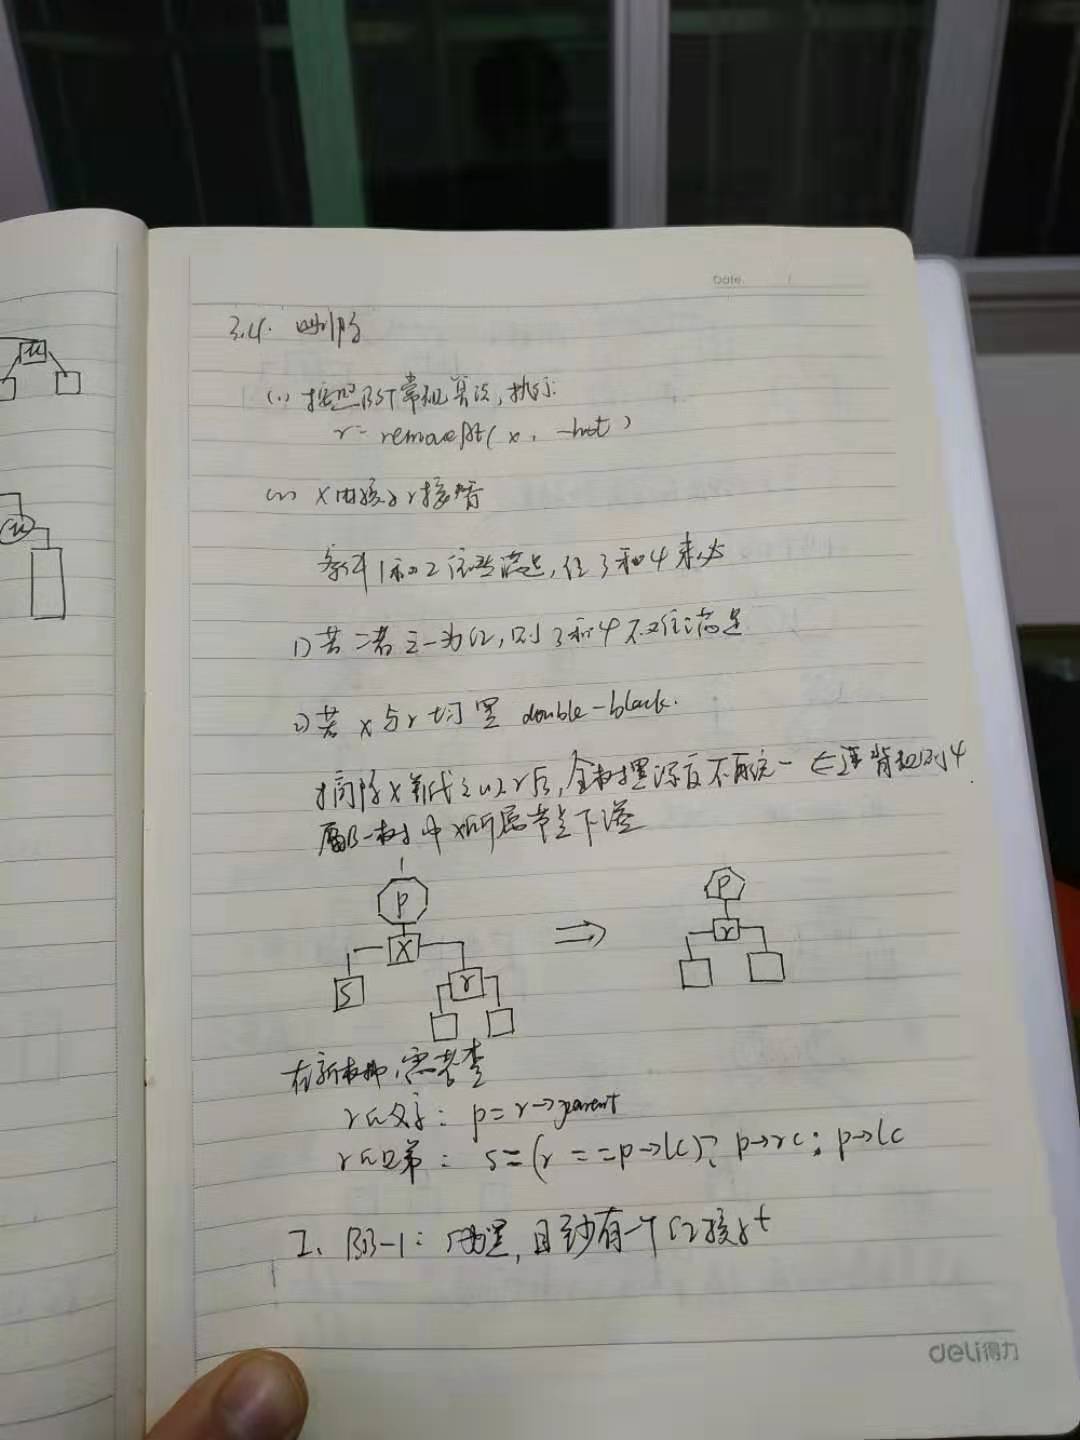 Date
3.4. 删除
(1) 按照BST常规算法,执行:
r = removeAt( x, _hot )
(2) x由孩子r接替
条件1和2依然满足,但3和4未必
1) 若二者之一为红,则3和4不难满足
2) 若x与r均黑 double-black.
摘除x并代之以r后,全树黑深度不再统一 ⇐ 违背规则4.
原B-树中x所属节点下溢
p
p
x
⇒
r
s
r
在新树中,需考查
r的父亲: p = r→parent
r的兄弟: s = (r == p→lc)? p→rc : p→lc
I. BB-1: s为黑,且至少有一个红孩子t
deli得力
u
u